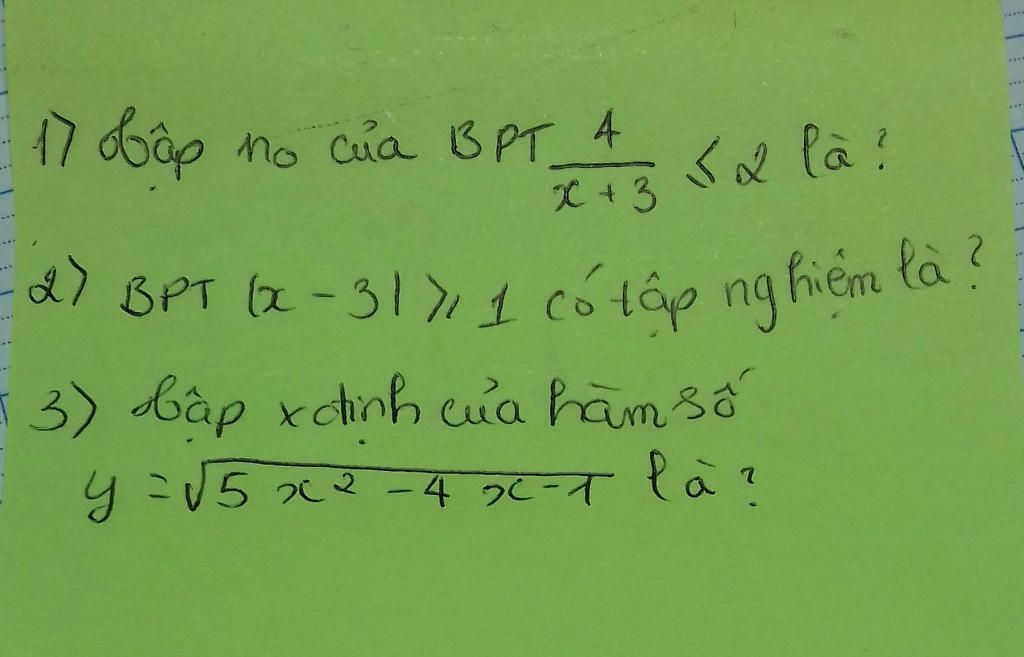 1) Tập no của BPT 4/(x + 3) ≤ 2 là?
2) BPT |x - 3| ≥ 1 có tập nghiệm là?
3) Tập xđịnh của hàm số
y = √(5x² - 4x - 1) là?